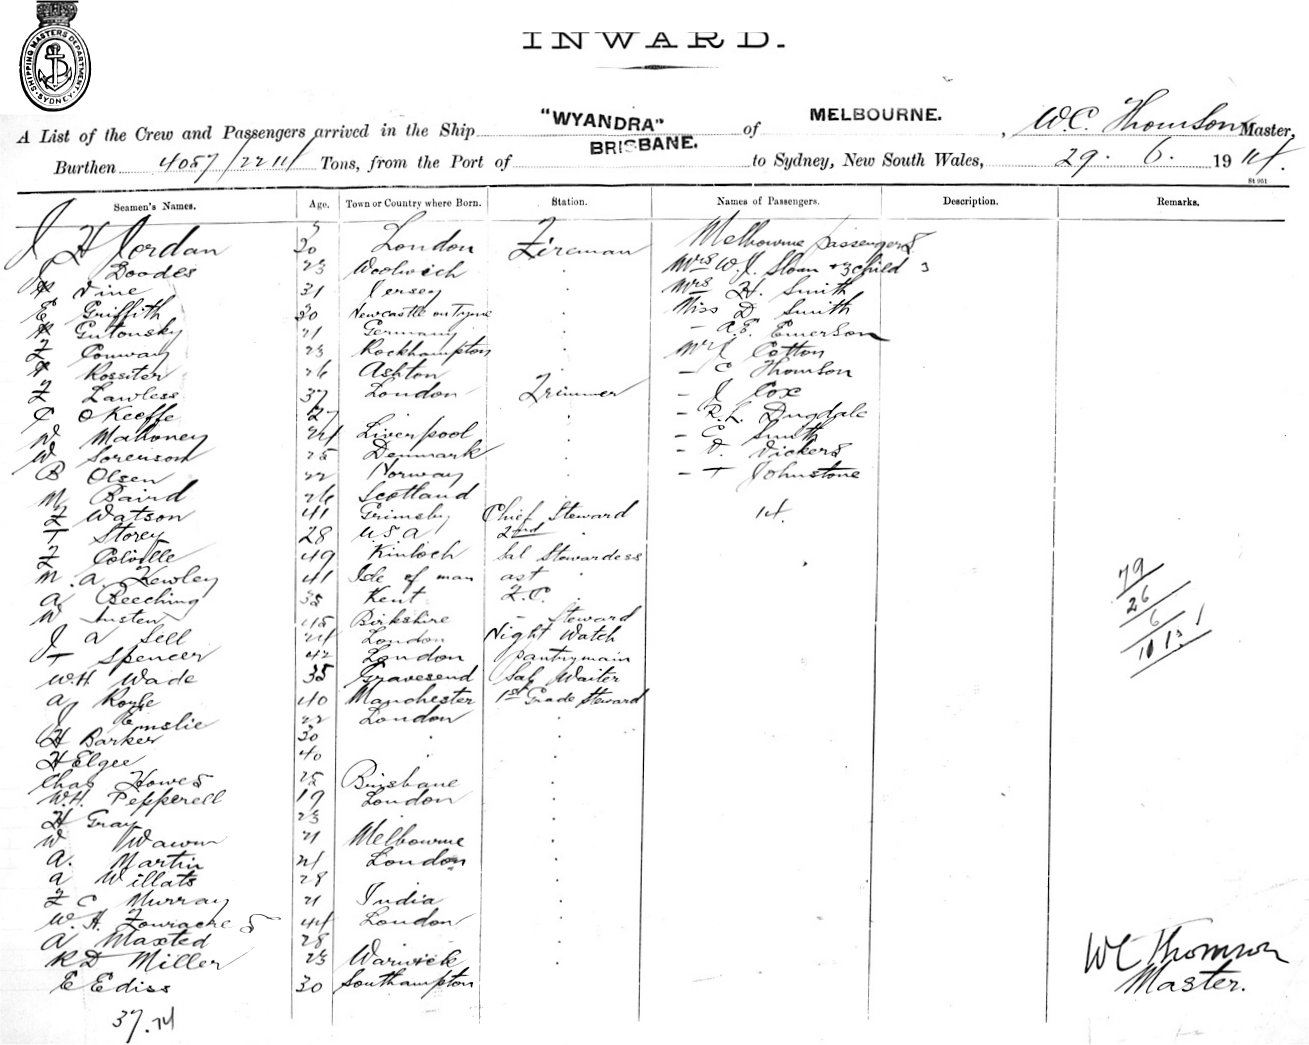 SHIPPING MASTERS DEPARTMENT
SYDNEY
INWARD.
A List of the Crew and Passengers arrived in the Ship "WYANDRA" of MELBOURNE. , W.C. Thomson Master,
Burthen 4057/2211 Tons, from the Port of BRISBANE. to Sydney, New South Wales, 29. 6. 1914.
St 951
Seamen's Names. Age. Town or Country where Born. Station. Names of Passengers. Description. Remarks.
J H Jordan 30 London Fireman Melbourne passengers
Doodes 23 Woolwich Mrs W.J. Sloan + 3 child 3
Vine 31 Jersey Mrs H. Smith
E Griffith 30 Newcastle on Tyne Miss D Smith
Gutonsky 21 Germany - A.E. Emerson
F Conway 23 Rockhampton Mr Cotton
Rossiter 26 Ashton - C Thomson
F Lawless 37 London Trimmer - J Cox
C O'Keeffe 27 - R.L. Dugdale
W Mahoney 24 Liverpool - E Smith
W Sorenson 25 Denmark - V. Vickers
B Olsen 22 Norway - T Johnstone
M Baird 26 Scotland
F Watson 41 Grimsby Chief Steward 14.
T Storey 28 U S A 2nd
F Colville 49 Kinloch Sal Stewardess
M. A. Kewley 41 Isle of man asst
A Beeching 35 Kent F.C.
W Austen 45 Birkshire - Steward
J A Sell 24 London Night Watch
T Spencer 42 London pantryman
W.H Wade 35 Gravesend Sal Waiter
A Royle 40 Manchester 1st Grade Steward
J Emslie 22 London
H Barker 30
H Elgee 40
Chas Howes 25 Brisbane
W.H. Pepperell 19 London
H Gray 23
W Wawn 21 Melbourne
A. Martin 24 London
A Willats 28
F C Murray 21 India
W. H. Fouracres 44 London
A Maxted 28
R D Miller 23 Warwick
E Ediss 30 Southampton
37.
79
26
6
W C Thomson
Master.